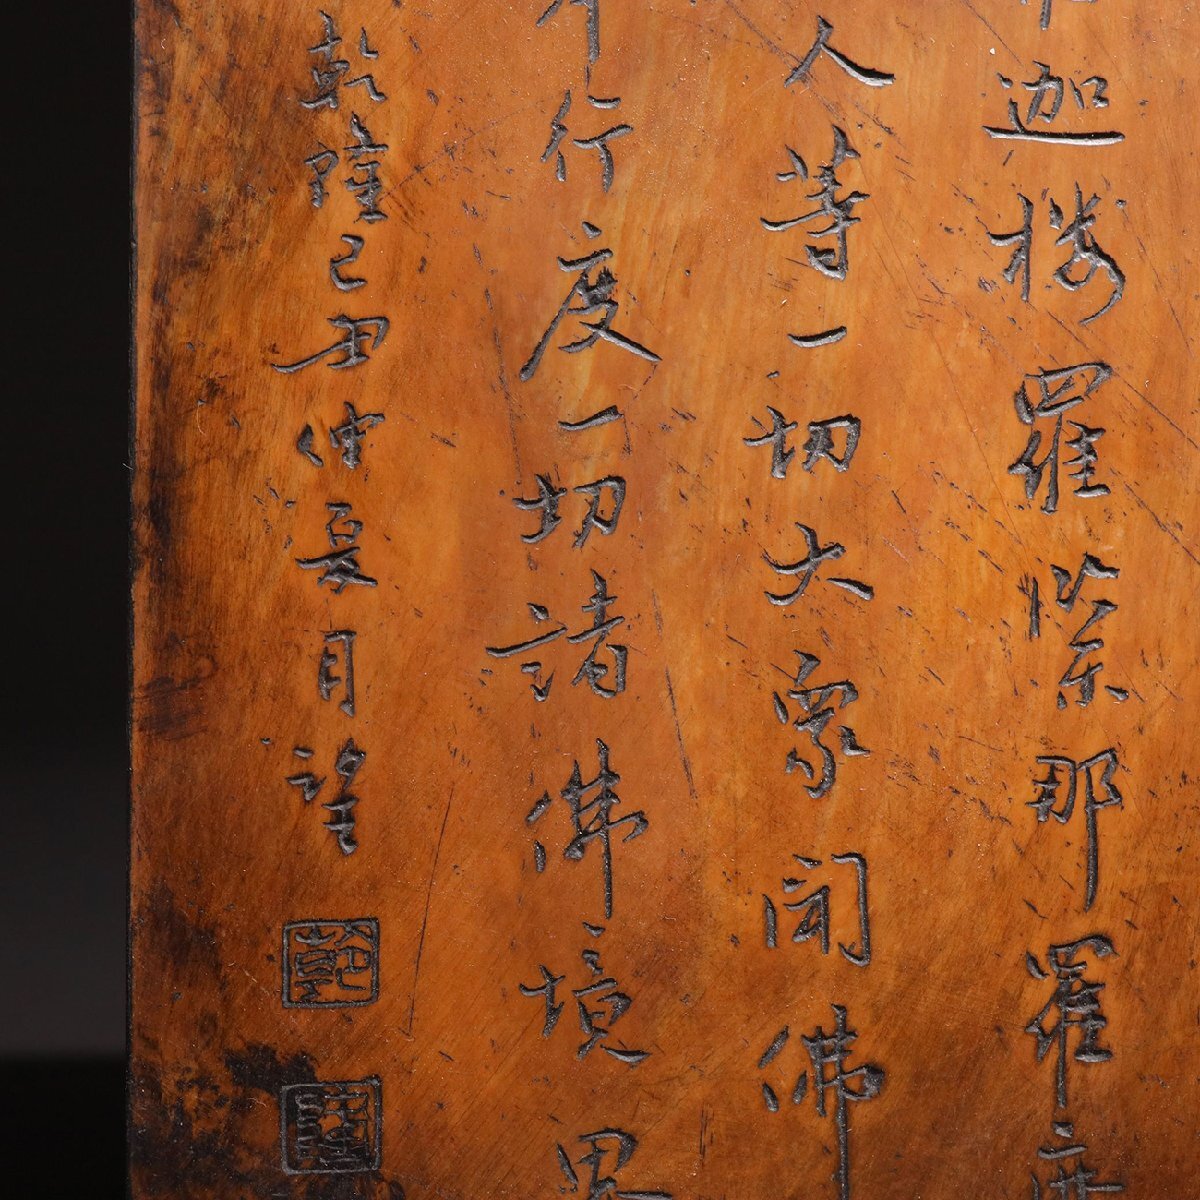 迦楼羅緊那羅摩
人等一切大眾聞佛
行度一切諸佛境界
乾隆己丑仲夏月望
乾
隆